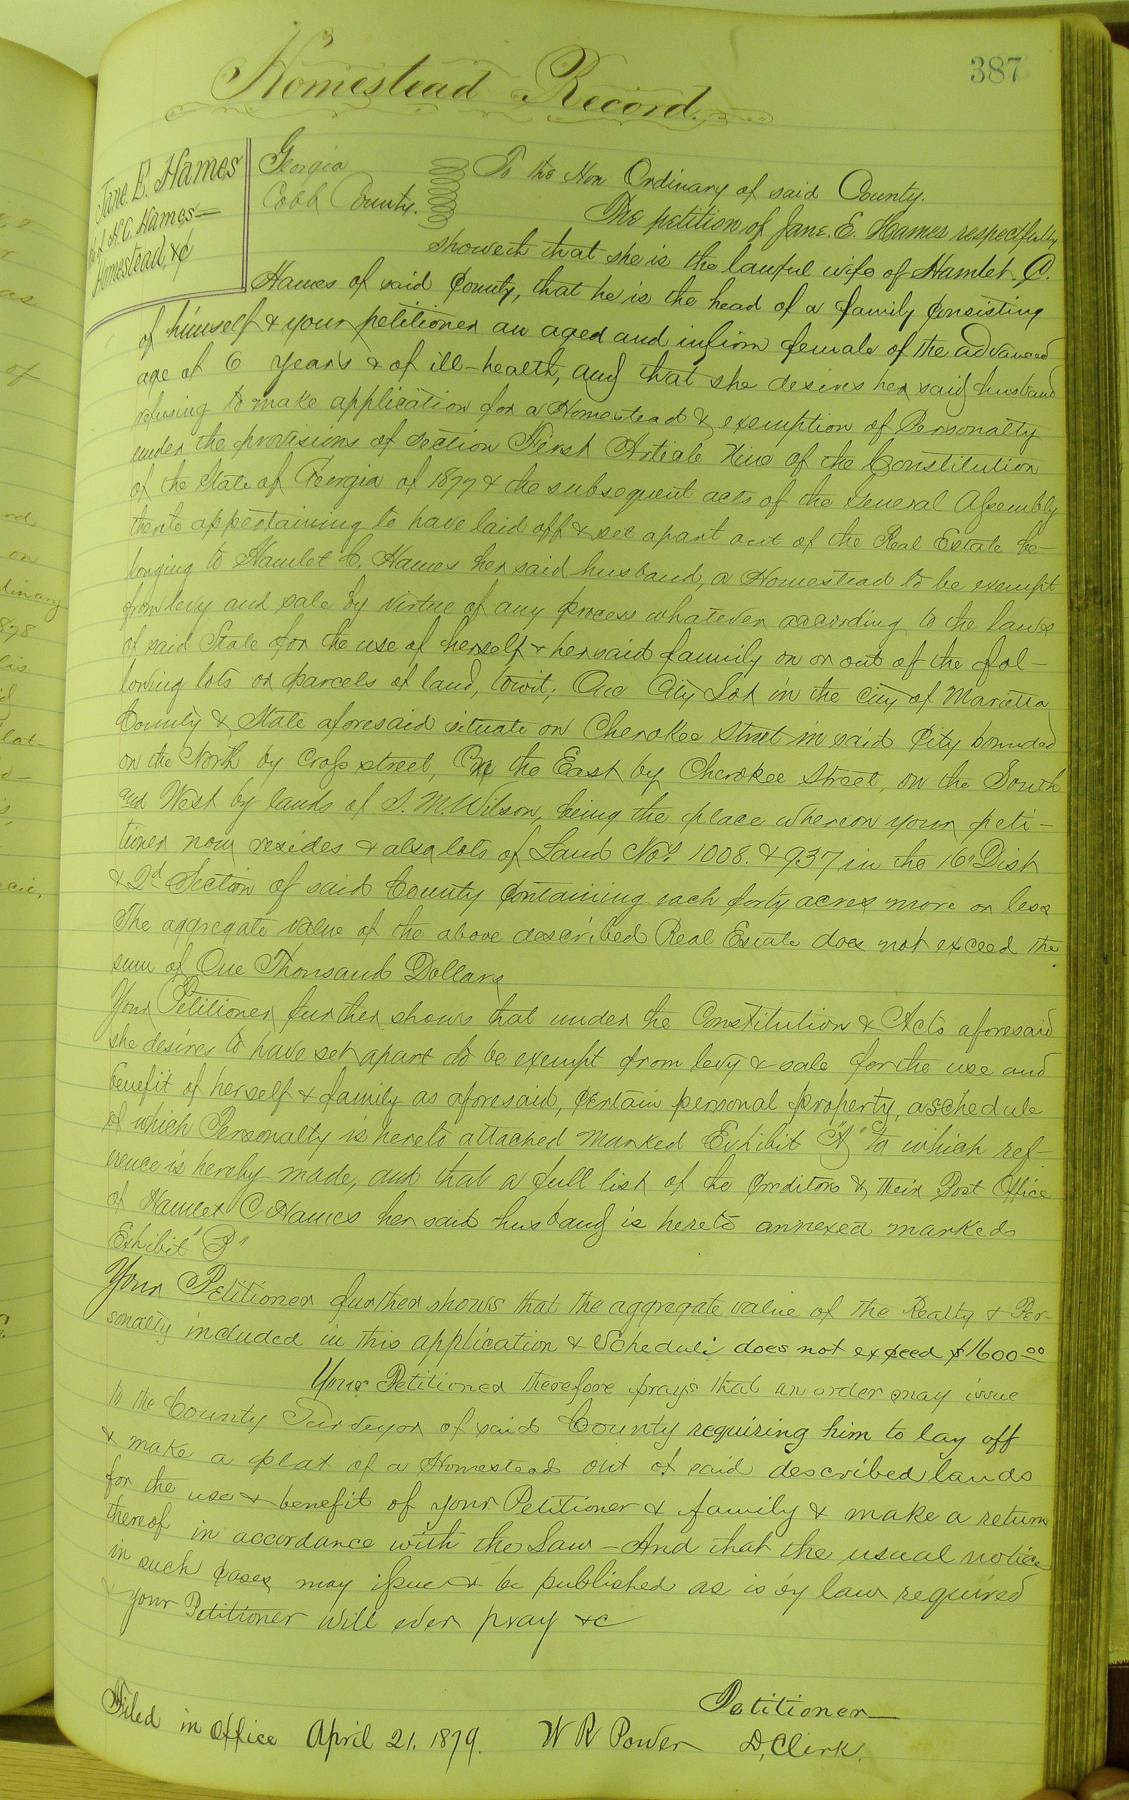 387
Homestead Record.
Jane. E. Hames
of H. C. Hames—
Homestead, &c
Georgia
Cobb County.
To the Hon Ordinary of said County.
The petition of Jane. E. Hames respectfully
showeth that she is the lawful wife of Hamlet. C.
Hames of said County, that he is the head of a family consisting
of himself & your petitioner an aged and infirm female of the advanced
age of 6 years & of ill-health, and that she desires her said husband
refusing to make application for a Homestead & exemption of Personalty
under the provisions of section First Article Nine of the Constitution
of the State of Georgia of 1877 & the subsequent acts of the General Assembly
thereto appertaining to have laid off & set apart out of the Real Estate be-
longing to Hamlet C. Hames her said husband, a Homestead to be exempt
from levy and sale by virtue of any process whatever according to the laws
of said State for the use of herself & her said family on or out of the fol-
lowing lots or parcels of land, towit; One City Lot in the city of Marietta
County & State aforesaid situate on Cherokee Street in said City bounded
on the North by Cross street, On the East by Cherokee Street, on the South
and West by lands of S. M. Wilson, being the place whereon your peti-
tioner now resides & also lots of Land Nos. 1008. & 937 in the 16" Dist
& 2d Section of said County containing each forty acres more or less
The aggregate value of the above described Real Estate does not exceed the
sum of One Thousand Dollars
Your Petitioner further shows that under the Constitution & Acts aforesaid
she desires to have set apart to be exempt from levy & sale for the use and
benefit of herself & family as aforesaid, certain personal property, a schedule
of which Personalty is hereto attached marked Exhibit "A" to which ref-
erence is hereby made, and that a full list of the Creditors & their Post Office
of Hamlet C Hames her said husband is hereto annexed marked
Exhibit "B"
Your Petitioner further shows that the aggregate value of the Realty & Per-
sonalty included in this application & Schedule does not exceed $1600.00
Your Petitioner therefore prays that an order may issue
to the County Surveyor of said County requiring him to lay off
& make a plat of a Homestead out of said described lands
for the use & benefit of your Petitioner & family & make a return
thereof in accordance with the Law – And that the usual notice
in such cases may issue & be published as is by law required
& your Petitioner will ever pray &c
Petitioner—
Filed in office April 21. 1879. W R Power D, Clerk.